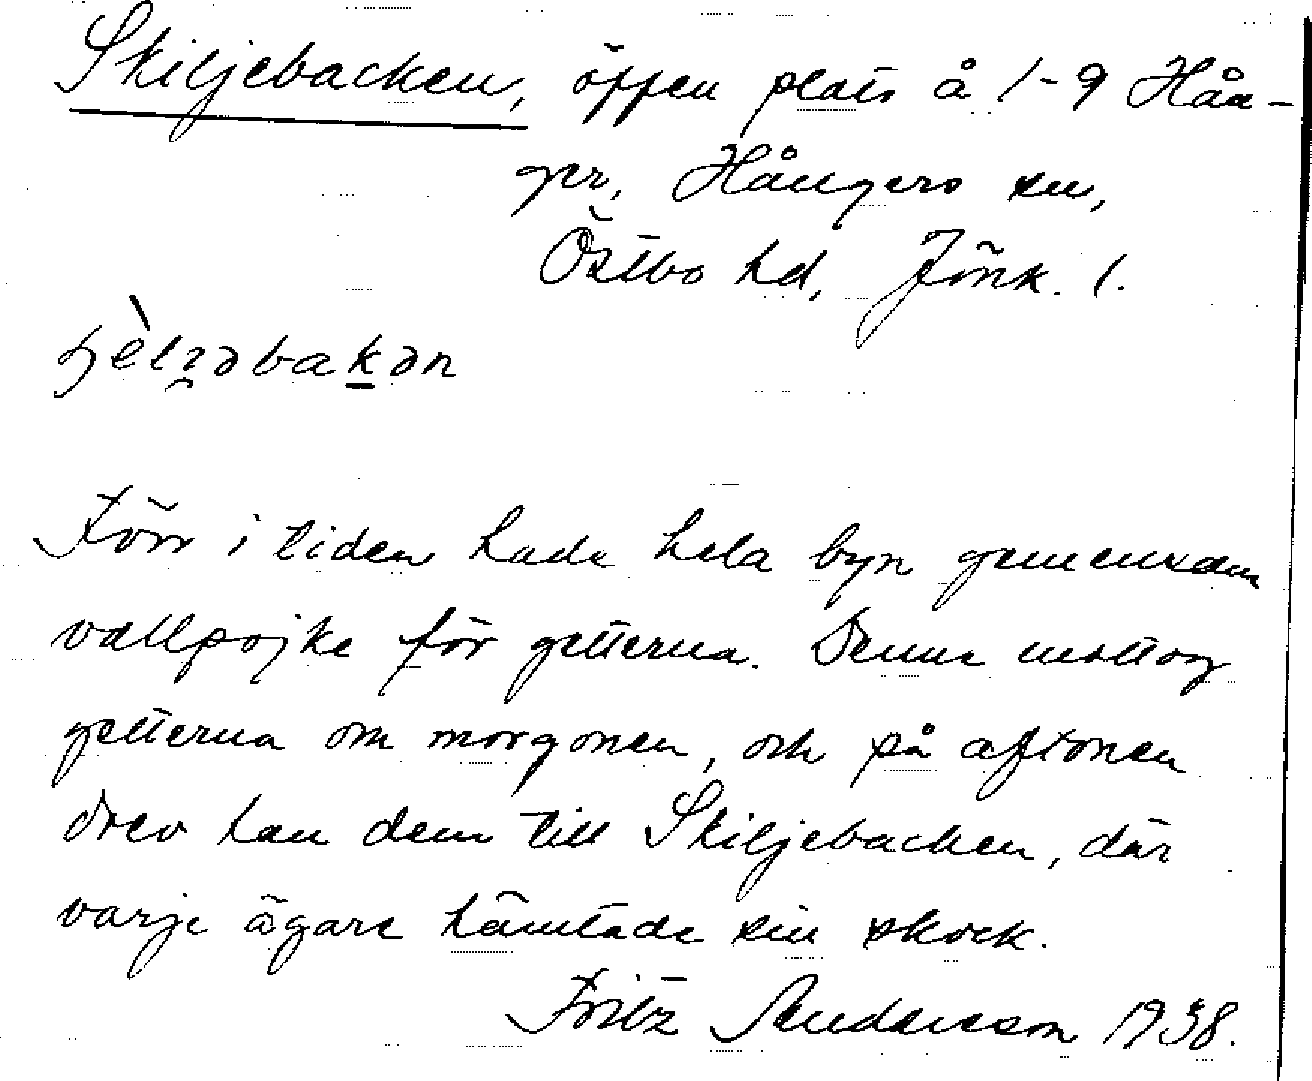 Skiljebacken, öppen plats å 1-9 Hån-
ger, Hångers sn,
Östbo hd, Jönk. l.
Förr i tiden hade hela byn gemensam
vallpojke för getterna. Denne mottog
getterna om morgonen, och på aftonen
drev han dem till Skiljebacken, där
varje ägare hämtade sin skock.
Fritz Andersson 1938.